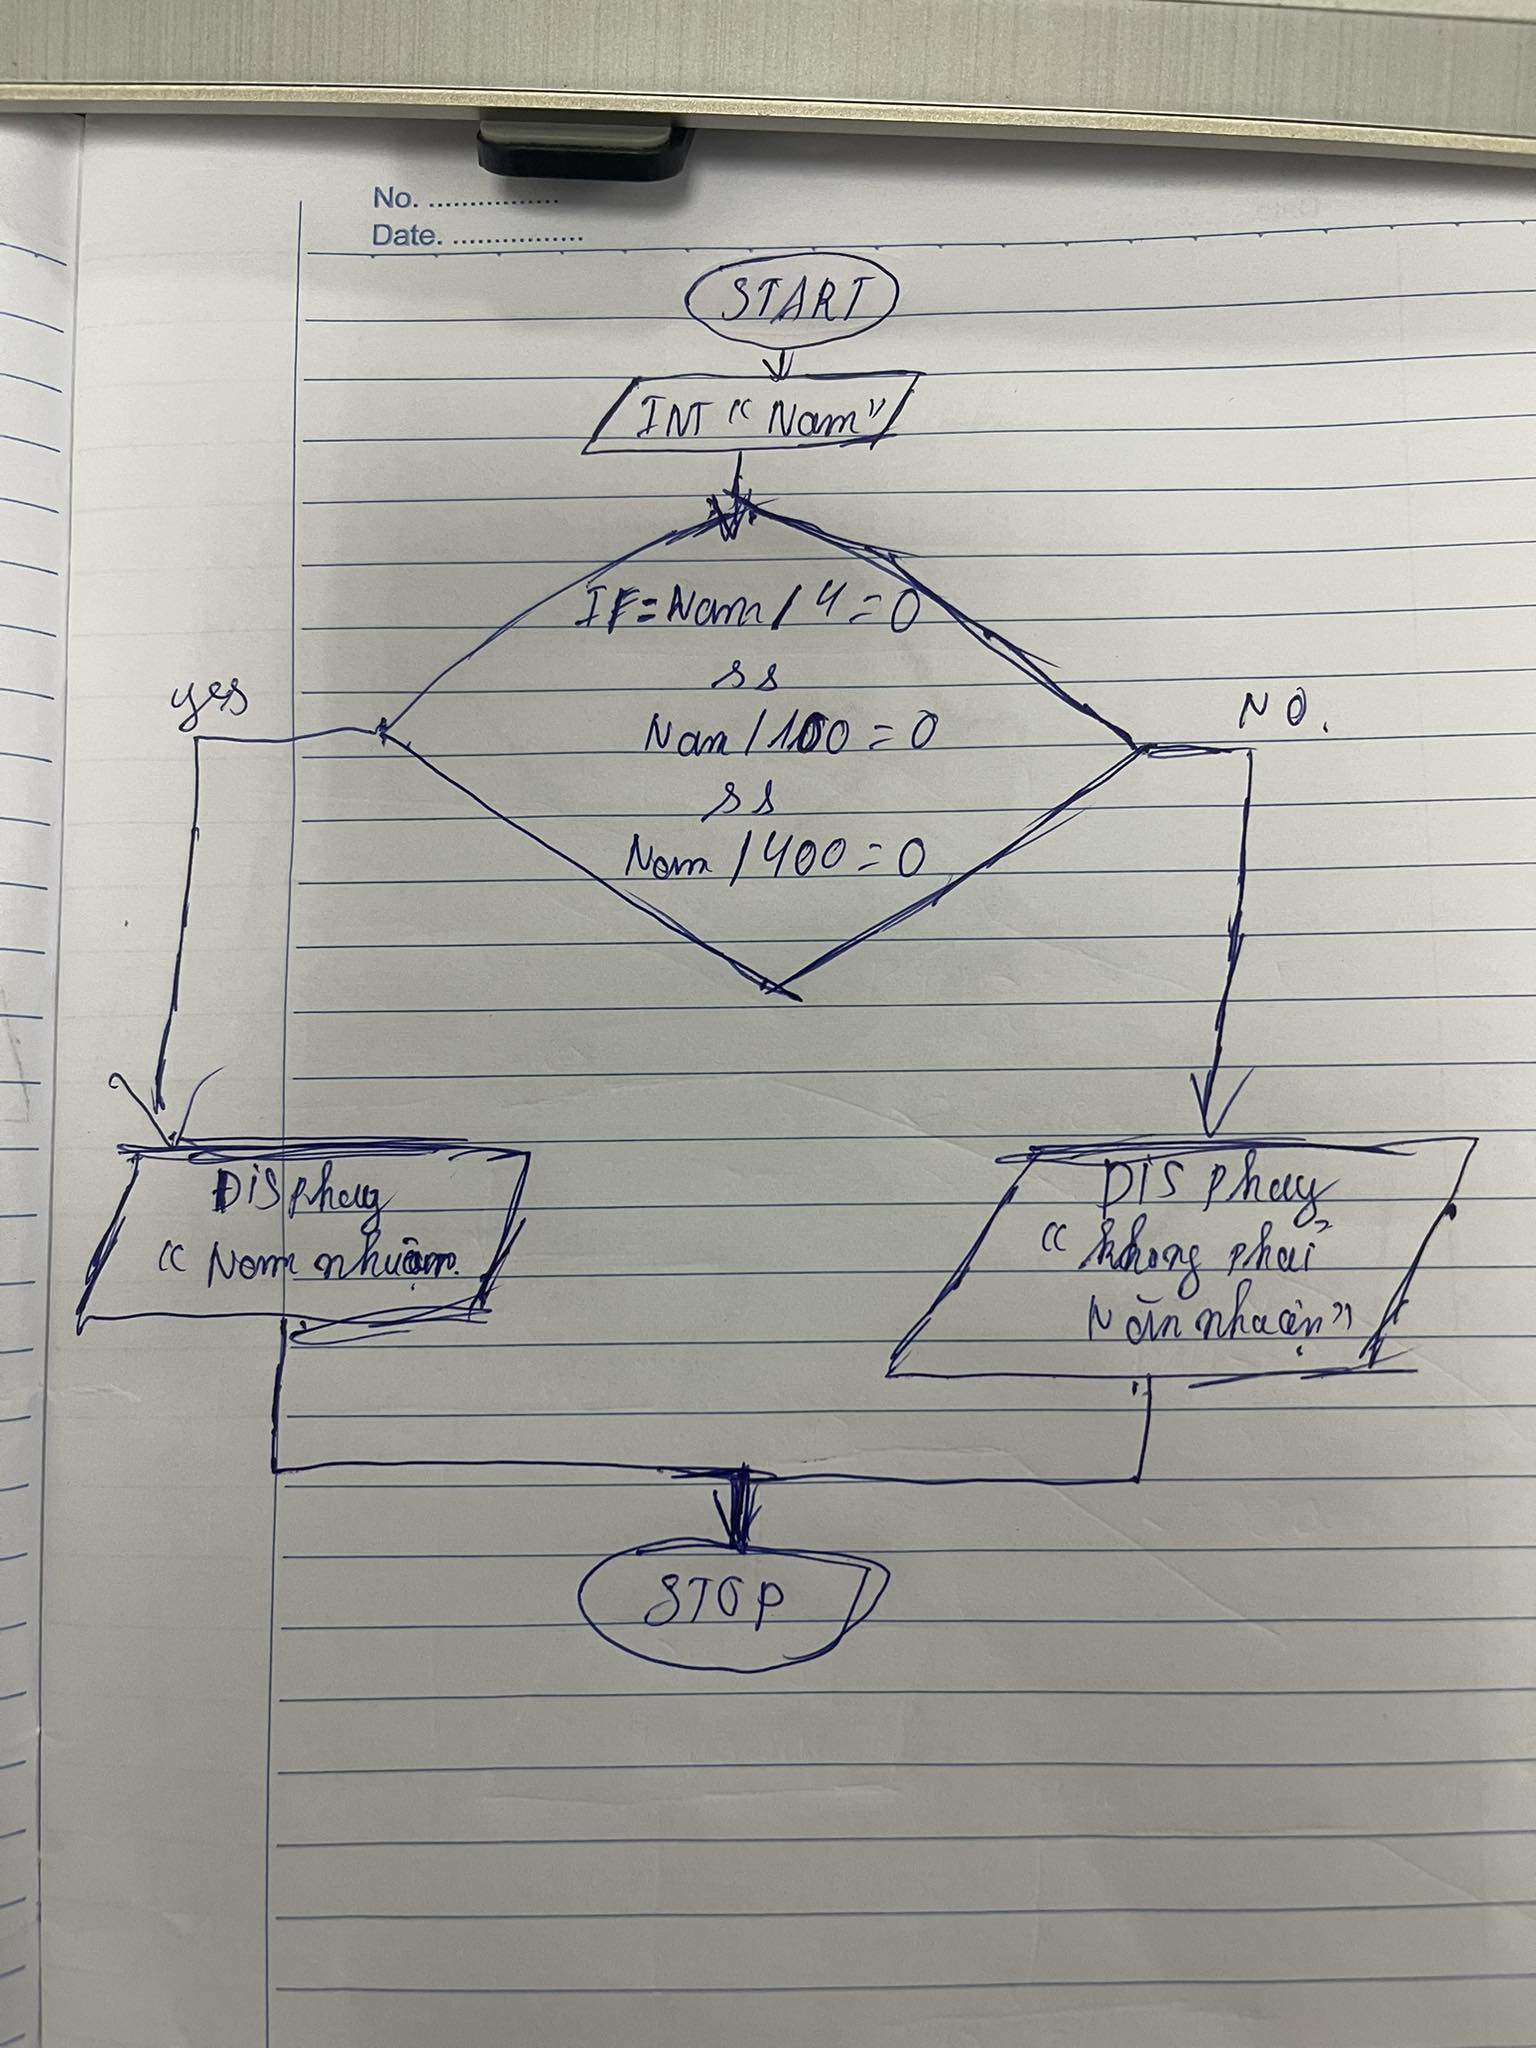 No. ................
Date. ................
START
INT "Nam"
IF=Nam / 4 = 0
ss
Nan / 100 = 0
ss
Nam / 400 = 0
yes
NO.
DISphay
"Nam nhuận.
DISphay
"không phải
Năn nhuận"
STOP